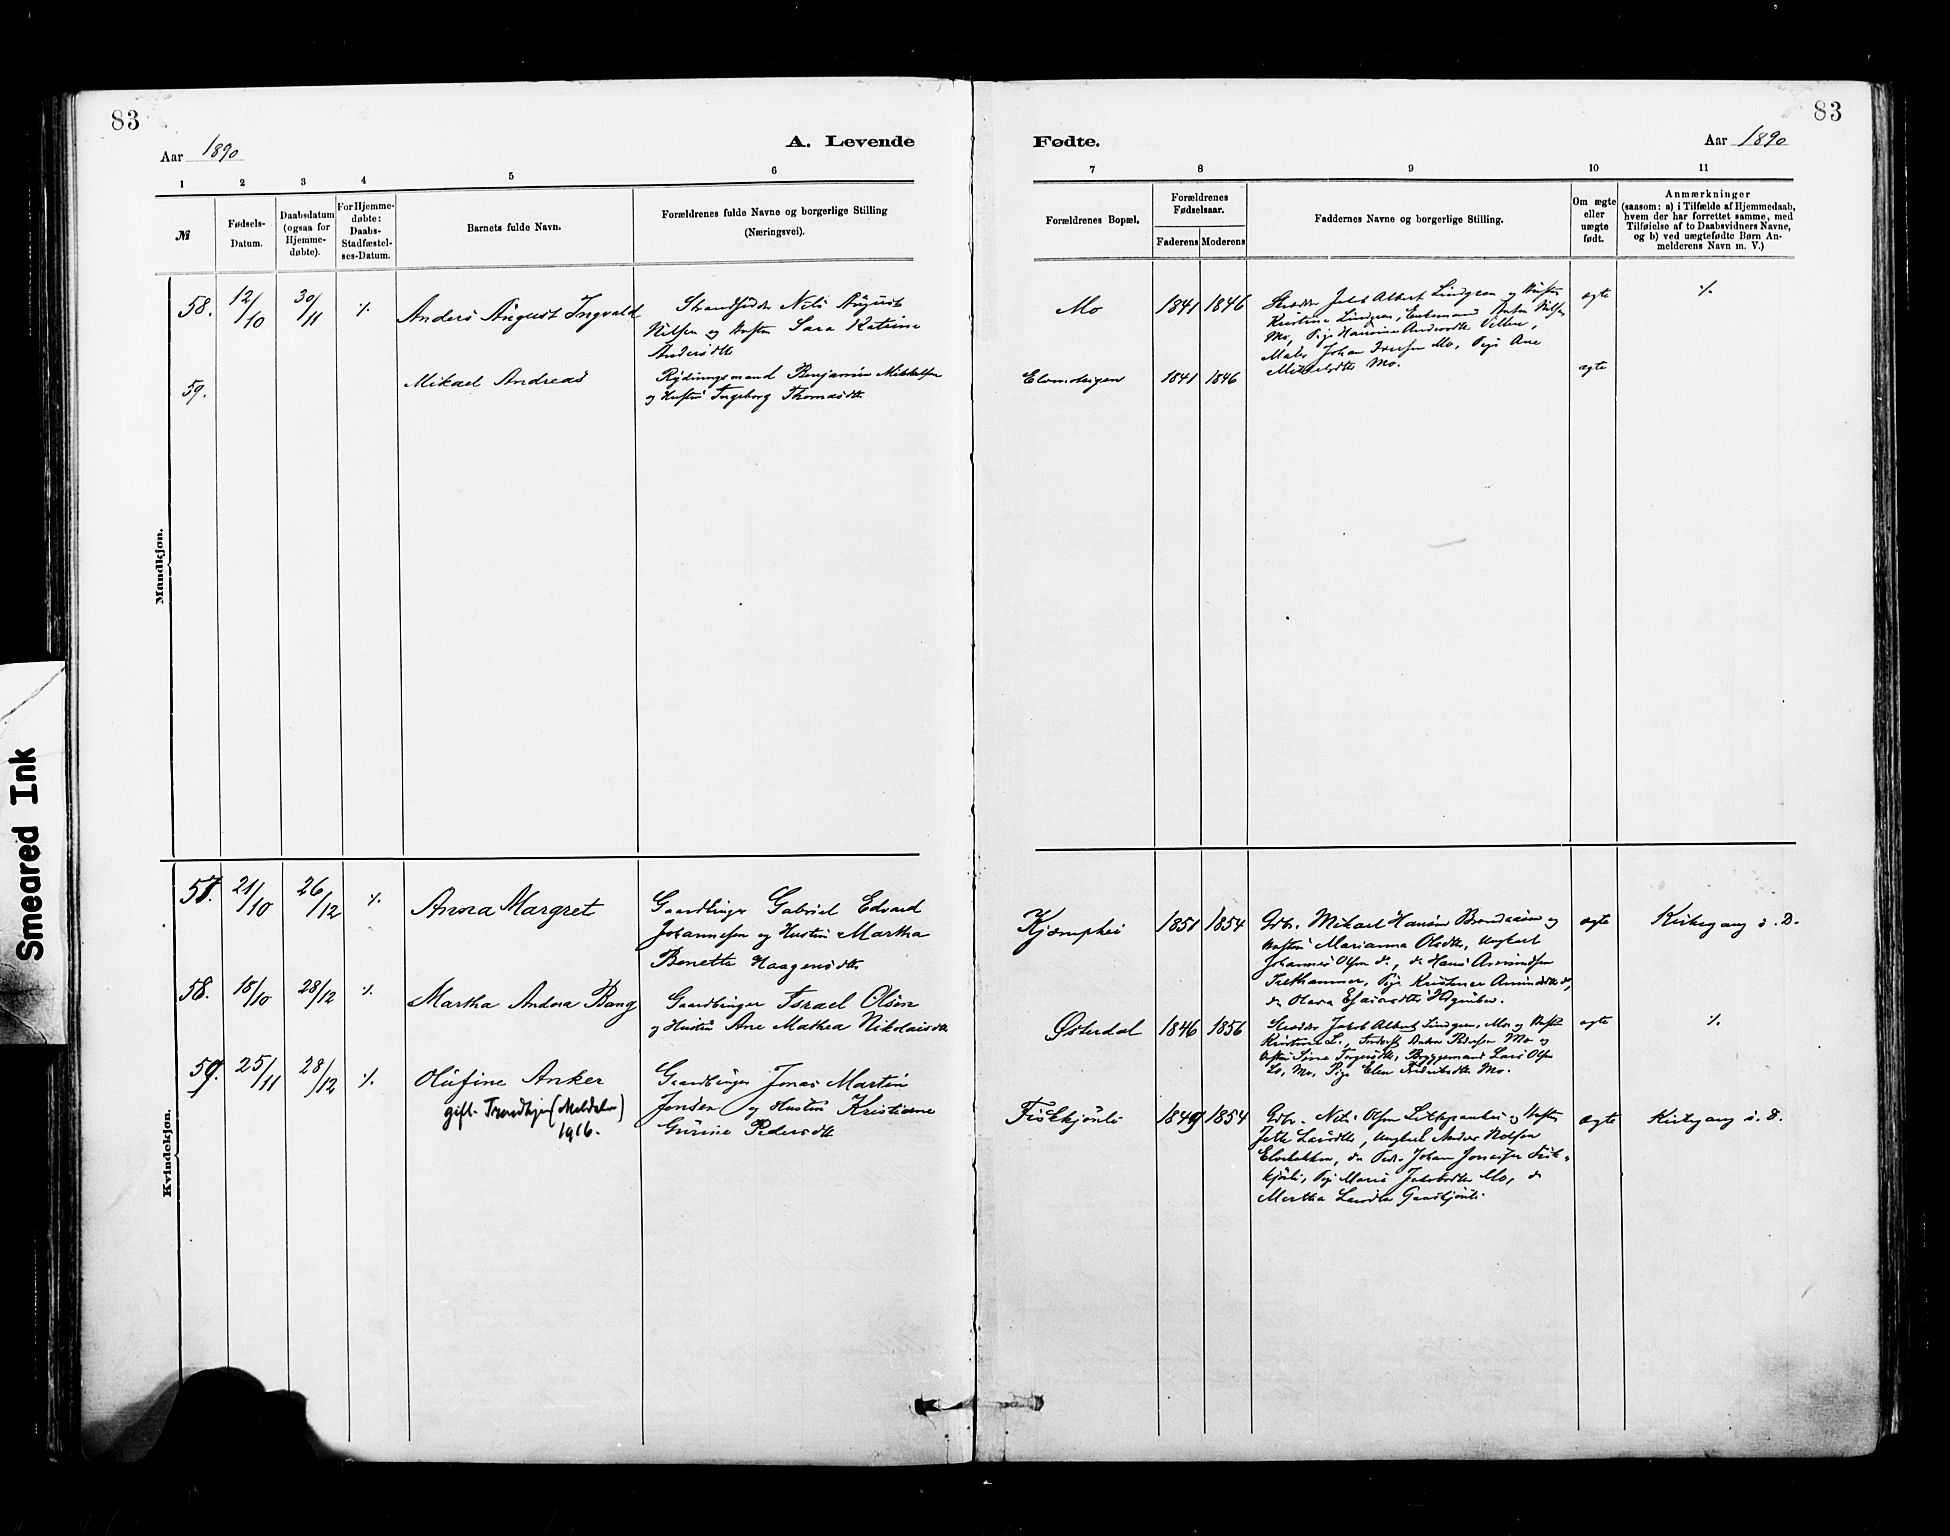 83
Aar 1890
A. Levende
1 2 3 4 5 6
№
Fødsels-
Datum.
Daabsdatum
(ogsaa for
Hjemme-
døbte).
For Hjemme-
døbte:
Daabs-
Stadfæstel-
ses-Datum.
Barnets fulde Navn.
Forældrenes fulde Navne og borgerlige Stilling
(Næringsvei).
Mandkjøn.
58. 12/10 30/11 ·/. Anders August Ingvald
Strandsidder Nils August
Nilsen og Hustru Sara Katrine
Andersdtr
59. Mikael Andreas
Rydningsmand Benjamin Mikkelsen
og Hustru Ingeborg Thomasdtr
Kvindekjøn.
57. 21/10 26/12 ·/. Anna Margret
Gaardbruger Gabriel Edvard
Johannesen og Hustru Martha
Benette Haagensdtr
58. 18/10 28/12 ·/. Martha Andrea Bang
Gaardbruger Israel Olsen
og Hustru Ane Mathea Nikolaisdtr
59. 25/11 28/12 ·/. Olufine Anker
gift. Trondhjem (Melda)
1916.
Gaardbruger Jonas Martin
Jensen og Hustru Kristianne
Gurine Pedersdtr
83
Fødte.
Aar 1890
7 8 9 10 11
Forældrenes Bopæl.
Forældrenes
Fødselsaar.
Faderens Moderens
Faddernes Navne og borgerlige Stilling.
Om ægte
eller
uægte
født.
Anmærkninger
(saasom: a) i Tilfælde af Hjemmedaab,
hvem der har forrettet samme, med
Tilføielse af to Daabsvidners Navne,
og b) ved uægtefødte Børn An-
melderens Navn m. V.)
Mo 1841 1846
Skrædder Jakob Albert Lindgren og Hustru
Kristine Lindgren, Enkemand Anton Nilsen
Mo, Pige Hansine Andersdtr
Maler Johan Iversen Mo, Pige Ane
Mikkelsdtr Mo.
ægte ·/.
1841 1846 ægte
Kjæmphei 1851 1854
Gdbr. Mikael Hansen Brandaasen og
Hustru Marianna Olsdtr, Ungkarl
Johannes Olsen do., do Hans Amundsen
Pige Kristine
do Olava
ægte Kirkegang s. D.
Østerdal 1846 1856
Skrædder Jakob Albert Lindgren, Mo og Hustru
Kristine L., Anton Pedersen Mo og
Hustru Bryggemand Lars Olsen
Mo, Pige Elen Fredriksdtr Mo.
ægte ·/.
Fiskkjønli 1849 1854
Gdbr. Nils Olsen og Hustru
Larsdtr, Ungkarl Anders Nolsen
Elvebakken, do Johan Jonassen Fisk-
kjønli, Pige Marie Jakobsdtr Mo, do
Martha Larsdtr
ægte Kirkegang s. D.
Smeared Ink